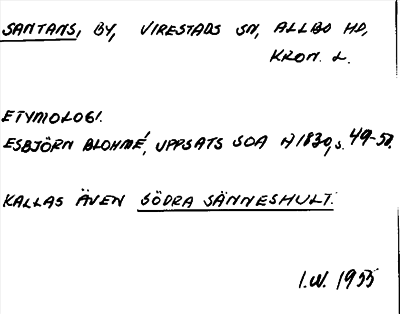 SANTANS, BY, VIRESTADS SN, ALLBO HD,
KRON. L.
ETYMOLOGI.
ESBJÖRN BLOHMÉ, UPPSATS SOA A1830, s. 49-50.
KALLAS ÄVEN SÖDRA SÄNNESHULT.
I.W. 1955